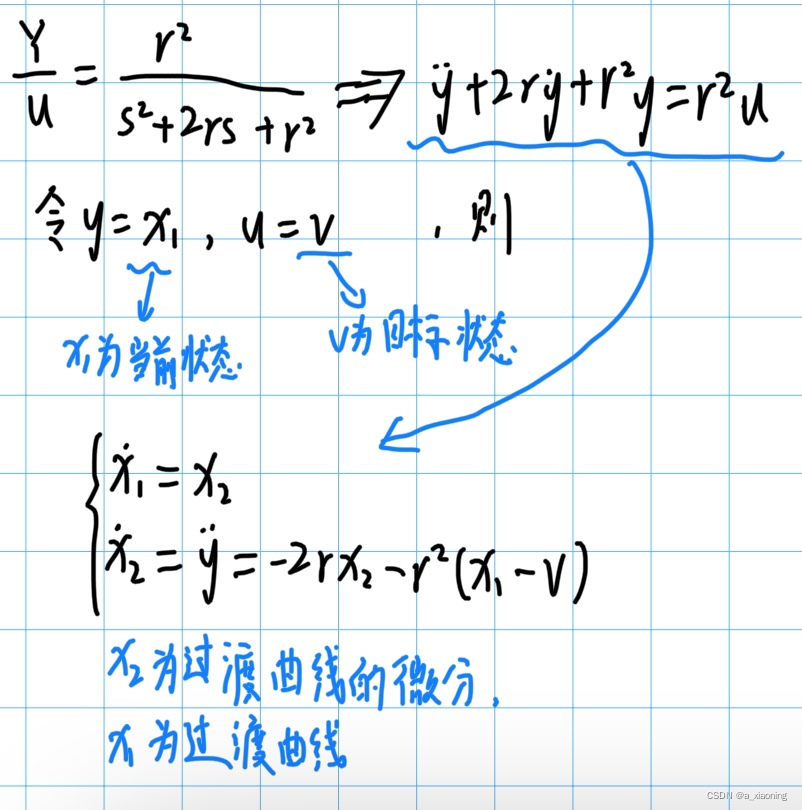 Y/u = r²/(s²+2rs+r²) ⇒ ÿ+2rẏ+r²y=r²u
令 y=x₁, u=v , 则
x₁为当前状态.
v为目标状态.
ẋ₁=x₂
ẋ₂=ÿ=-2rx₂-r²(x₁-v)
x₂为过渡曲线的微分,
x₁为过渡曲线
CSDN @a_xiaoning